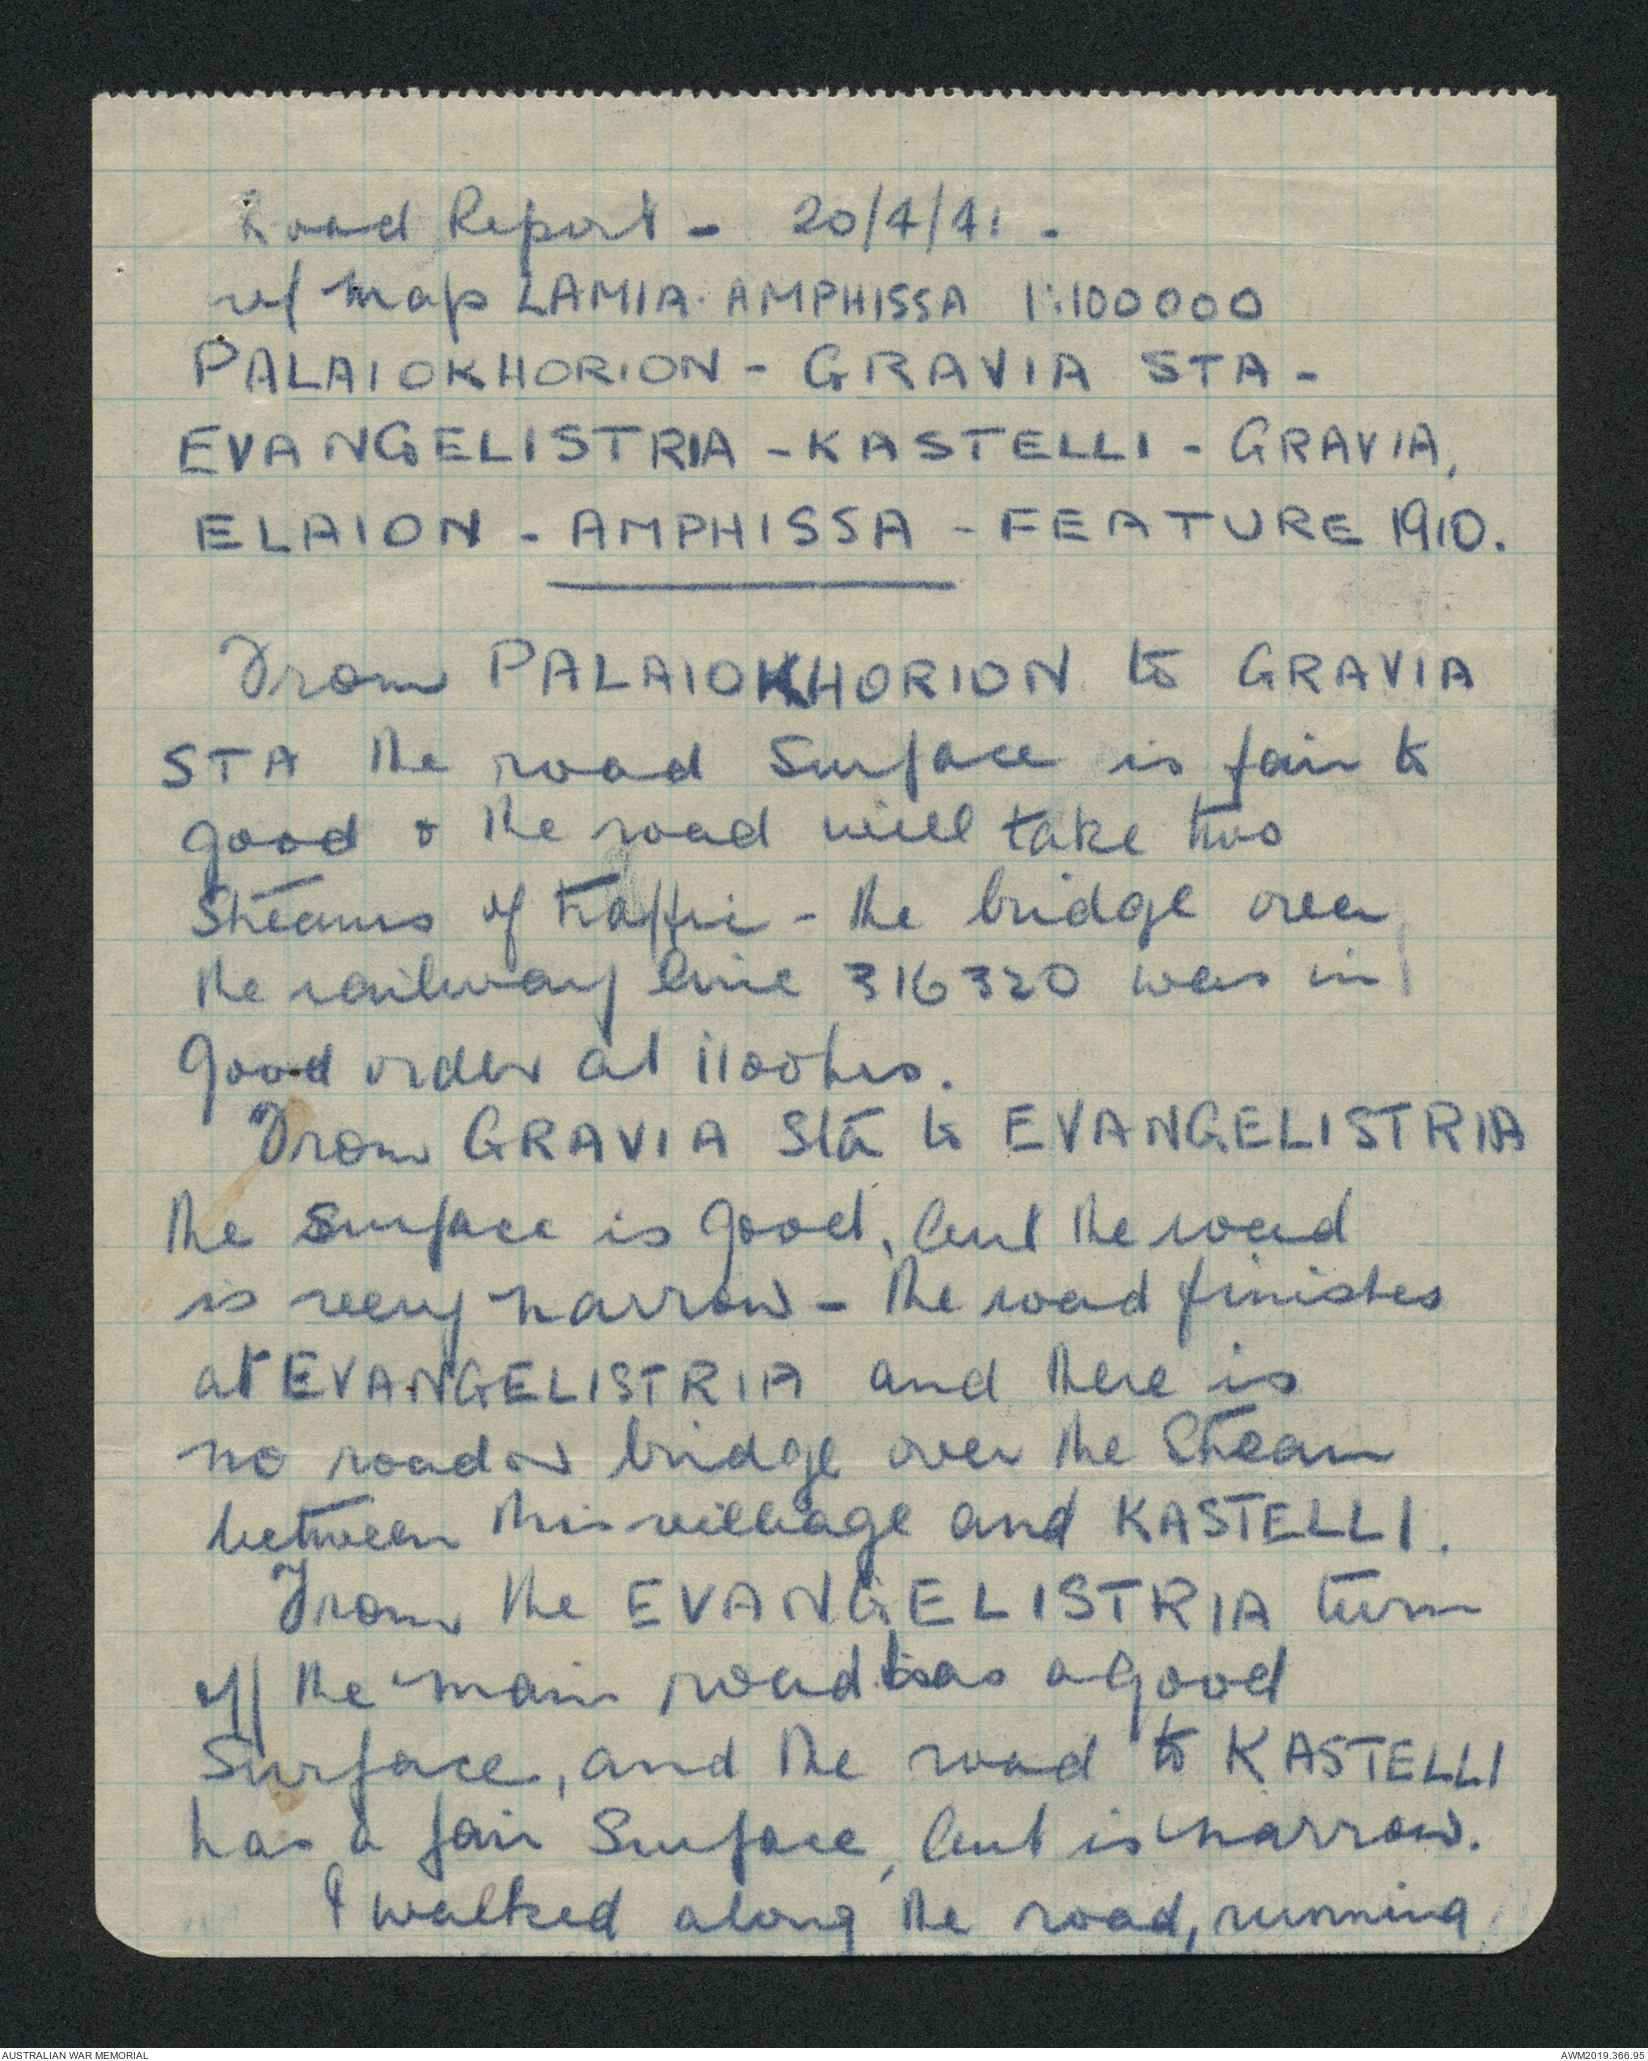 Road Report - 20/4/41 -
ref map LAMIA. AMPHISSA 1:100000
PALAIOKHORION - GRAVIA STA -
EVANGELISTRIA - KASTELLI - GRAVIA,
ELAION - AMPHISSA - FEATURE 1910.
From PALAIOKHORION to GRAVIA
STA the road surface is fair to
good & the road will take two
streams of traffic - the bridge over
the railway line 316320 was in
good order at 1100hrs.
From GRAVIA Sta to EVANGELISTRIA
the surface is good, but the road
is very narrow - the road finishes
at EVANGELISTRIA and there is
no road or bridge over the stream
between this village and KASTELLI.
From the EVANGELISTRIA turn
off the main road has a good
surface, and the road to KASTELLI
has a fair surface, but is narrow.
I walked along the road, running
AUSTRALIAN WAR MEMORIAL
AWM2019.366.95